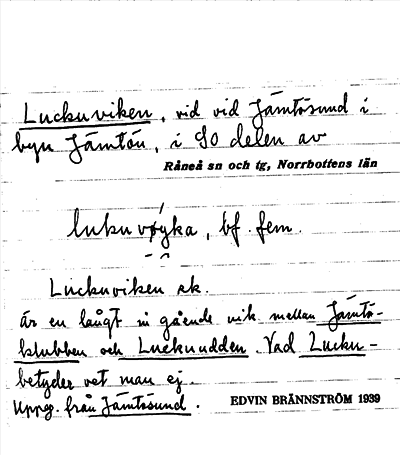 Luckuviken, vid vid Jämtösund i
byn Jämtön, i SO delen av
Råneå sn och tg, Norrbottens län
luku vøyka, bf. fem.
Luckuviken sk.
är en långt in gående vik mellan Jämtö-
klubben och Luckuudden. Vad Lucku-
betyder vet man ej.
Uppg. från Jämtösund.
EDVIN BRÄNNSTRÖM 1939